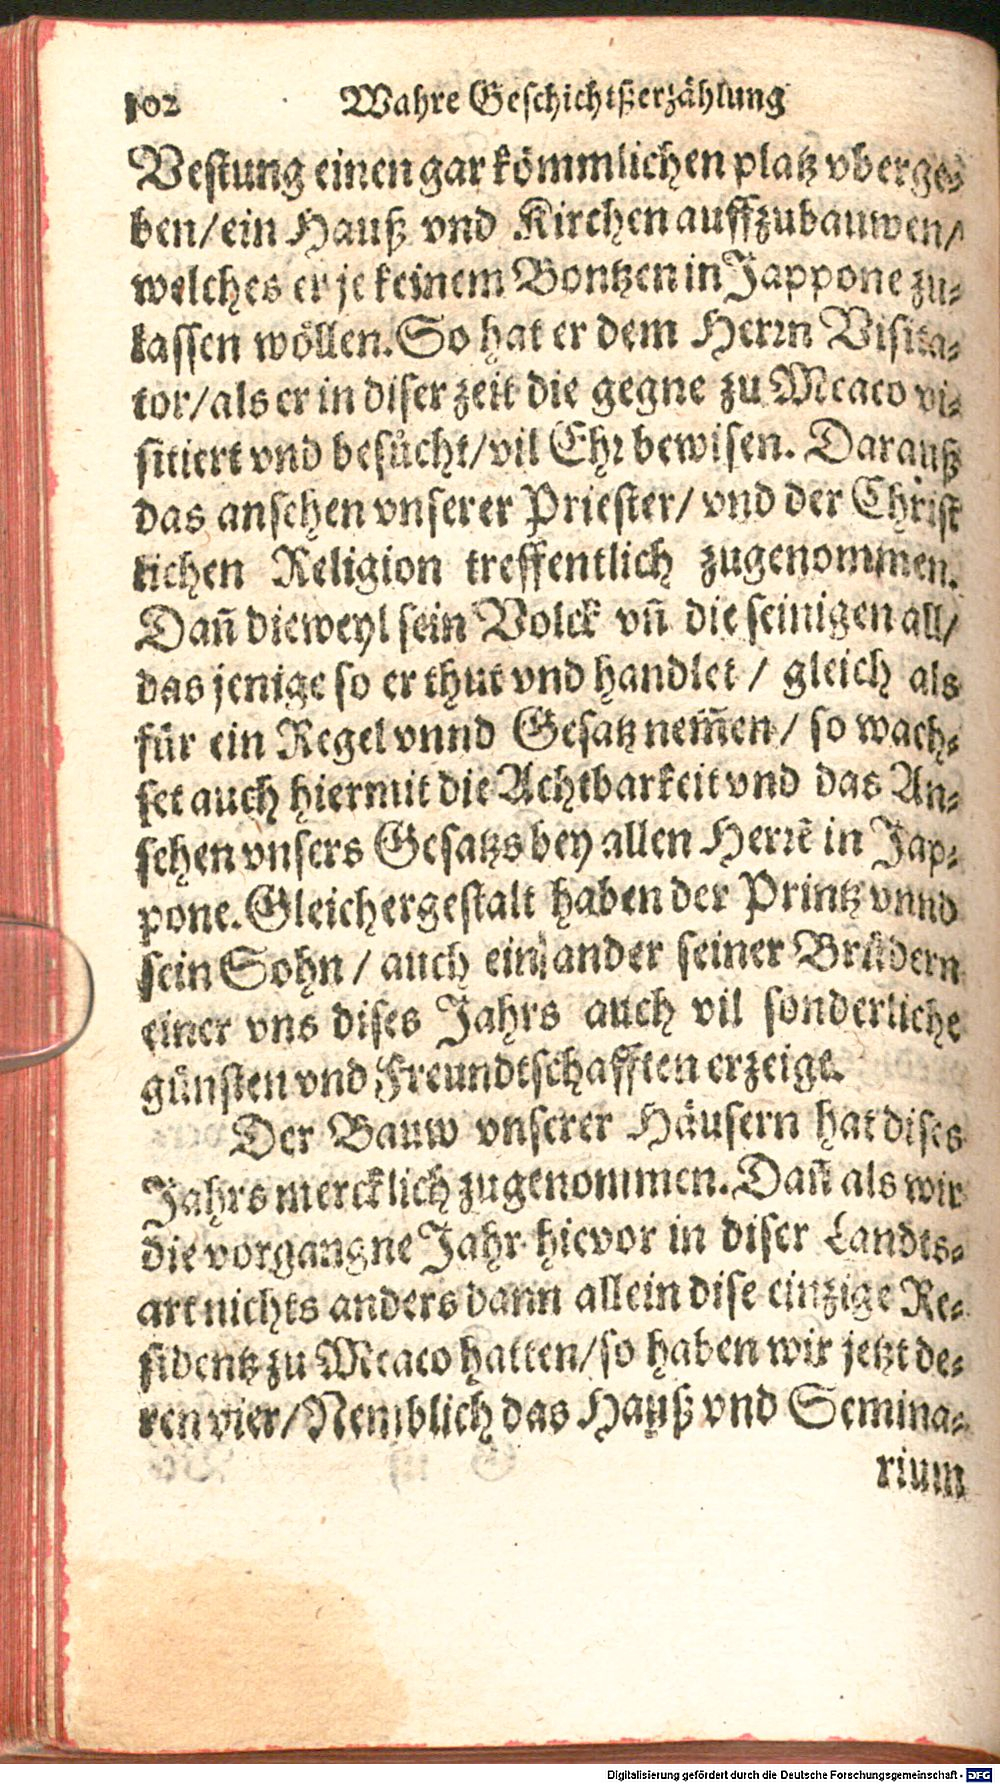 102 Wahre Geschichtßerzählung
Vestung einen gar kömmlichen platz vberge-
ben/ein Hauß vnd Kirchen auffzubauwen/
welches er je keinem Bontzen in Jappone zu-
lassen wöllen. So hat er dem Herrn Visita-
tor/als er in diser zeit die gegne zu Meaco vi-
sitiert vnd besůcht/vil Ehr bewisen. Darauß
das ansehen vnserer Priester/ vnd der Christ
lichen Religion treffentlich zugenommen.
Dañ dieweyl sein Volck vñ die seinigen all/
das jenige so er thut vnd handlet / gleich als
für ein Regel vnnd Gesatz nem̃en / so wach-
set auch hiermit die Achtbarkeit vnd das An-
sehen vnsers Gesatzs bey allen Herrẽ in Jap-
pone. Gleichergestalt haben der Printz vnnd
sein Sohn / auch ein ander seiner Brüdern
einer vns dises Jahrs auch vil sonderliche
günsten vnd Freundtschafften erzeigt.
Der Bauw vnserer Häusern hat dises
Jahrs mercklich zugenommen. Dañ als wir
die vorgangne Jahr hievor in diser Landts-
art nichts anders dann allein dise einzige Re-
sidentz zu Meaco hatten/so haben wir jetzt de-
ren vier/Nemblich das Hauß vnd Semina-
rium
Digitalisierung gefördert durch die Deutsche Forschungsgemeinschaft - DFG